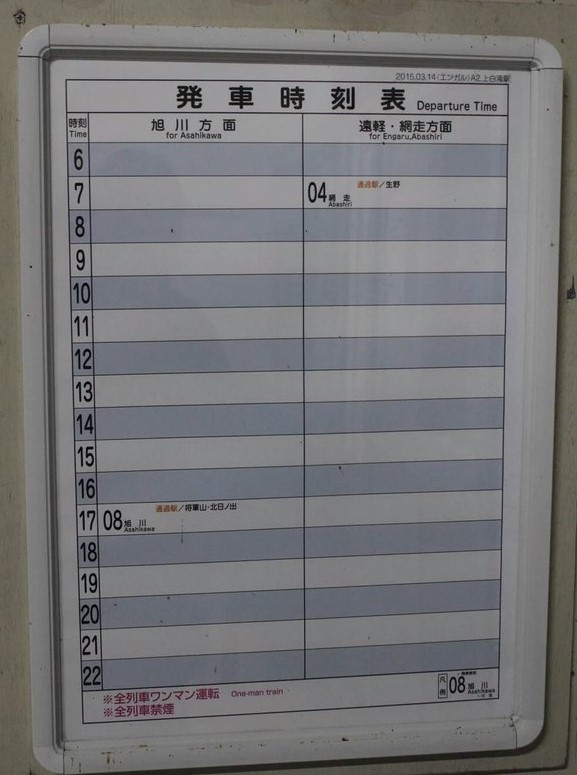 2015.03.14(エンガル)A2 上白滝駅
発車時刻表 Departure Time
時刻 旭川方面 遠軽・網走方面
Time for Asahikawa for Engaru,Abashiri
6
通過駅/生野
7 04 網走
Abashiri
8
9
10
11
12
13
14
15
16
通過駅/将軍山・北日ノ出
17 08 旭川
Asahikawa
18
19
20
21
22
※全列車ワンマン運転 One-man train
※全列車禁煙
凡例 08 旭川
Asahikawa